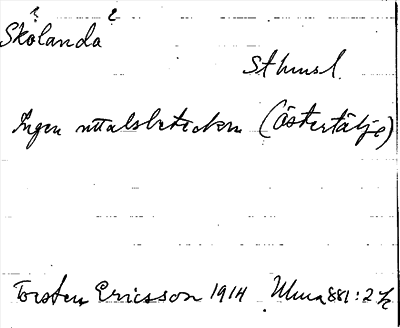 ? ?
Skolanda
Sthmsl.
Ingen uttalsbeteckn (Östertälje)
Torsten Ericsson 1914 Uma 881:2